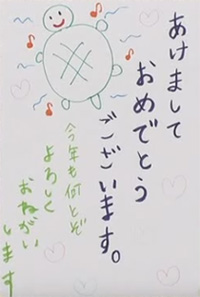 あけまして
おめでとう
ございます。
今年も何とぞ
よろしく
おねがい
します